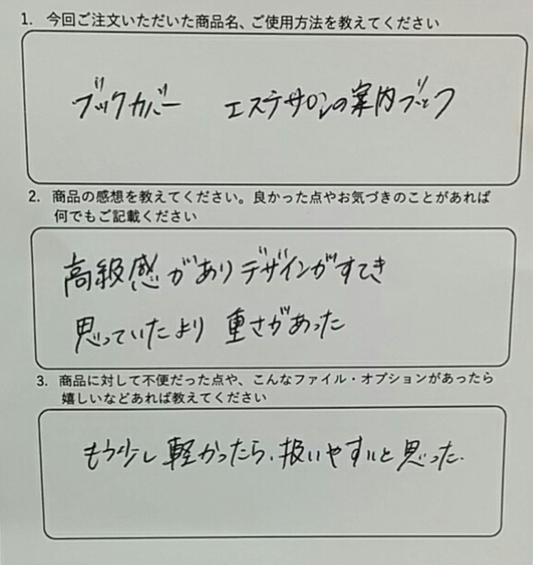 1. 今回ご注文いただいた商品名、ご使用方法を教えてください
ブックカバー エステサロンの案内ブック
2. 商品の感想を教えてください。良かった点やお気づきのことがあれば
何でもご記載ください
高級感がありデザインがすてき
思っていたより重さがあった
3. 商品に対して不便だった点や、こんなファイル・オプションがあったら
嬉しいなどあれば教えてください
もう少し軽かったら、扱いやすいと思った.